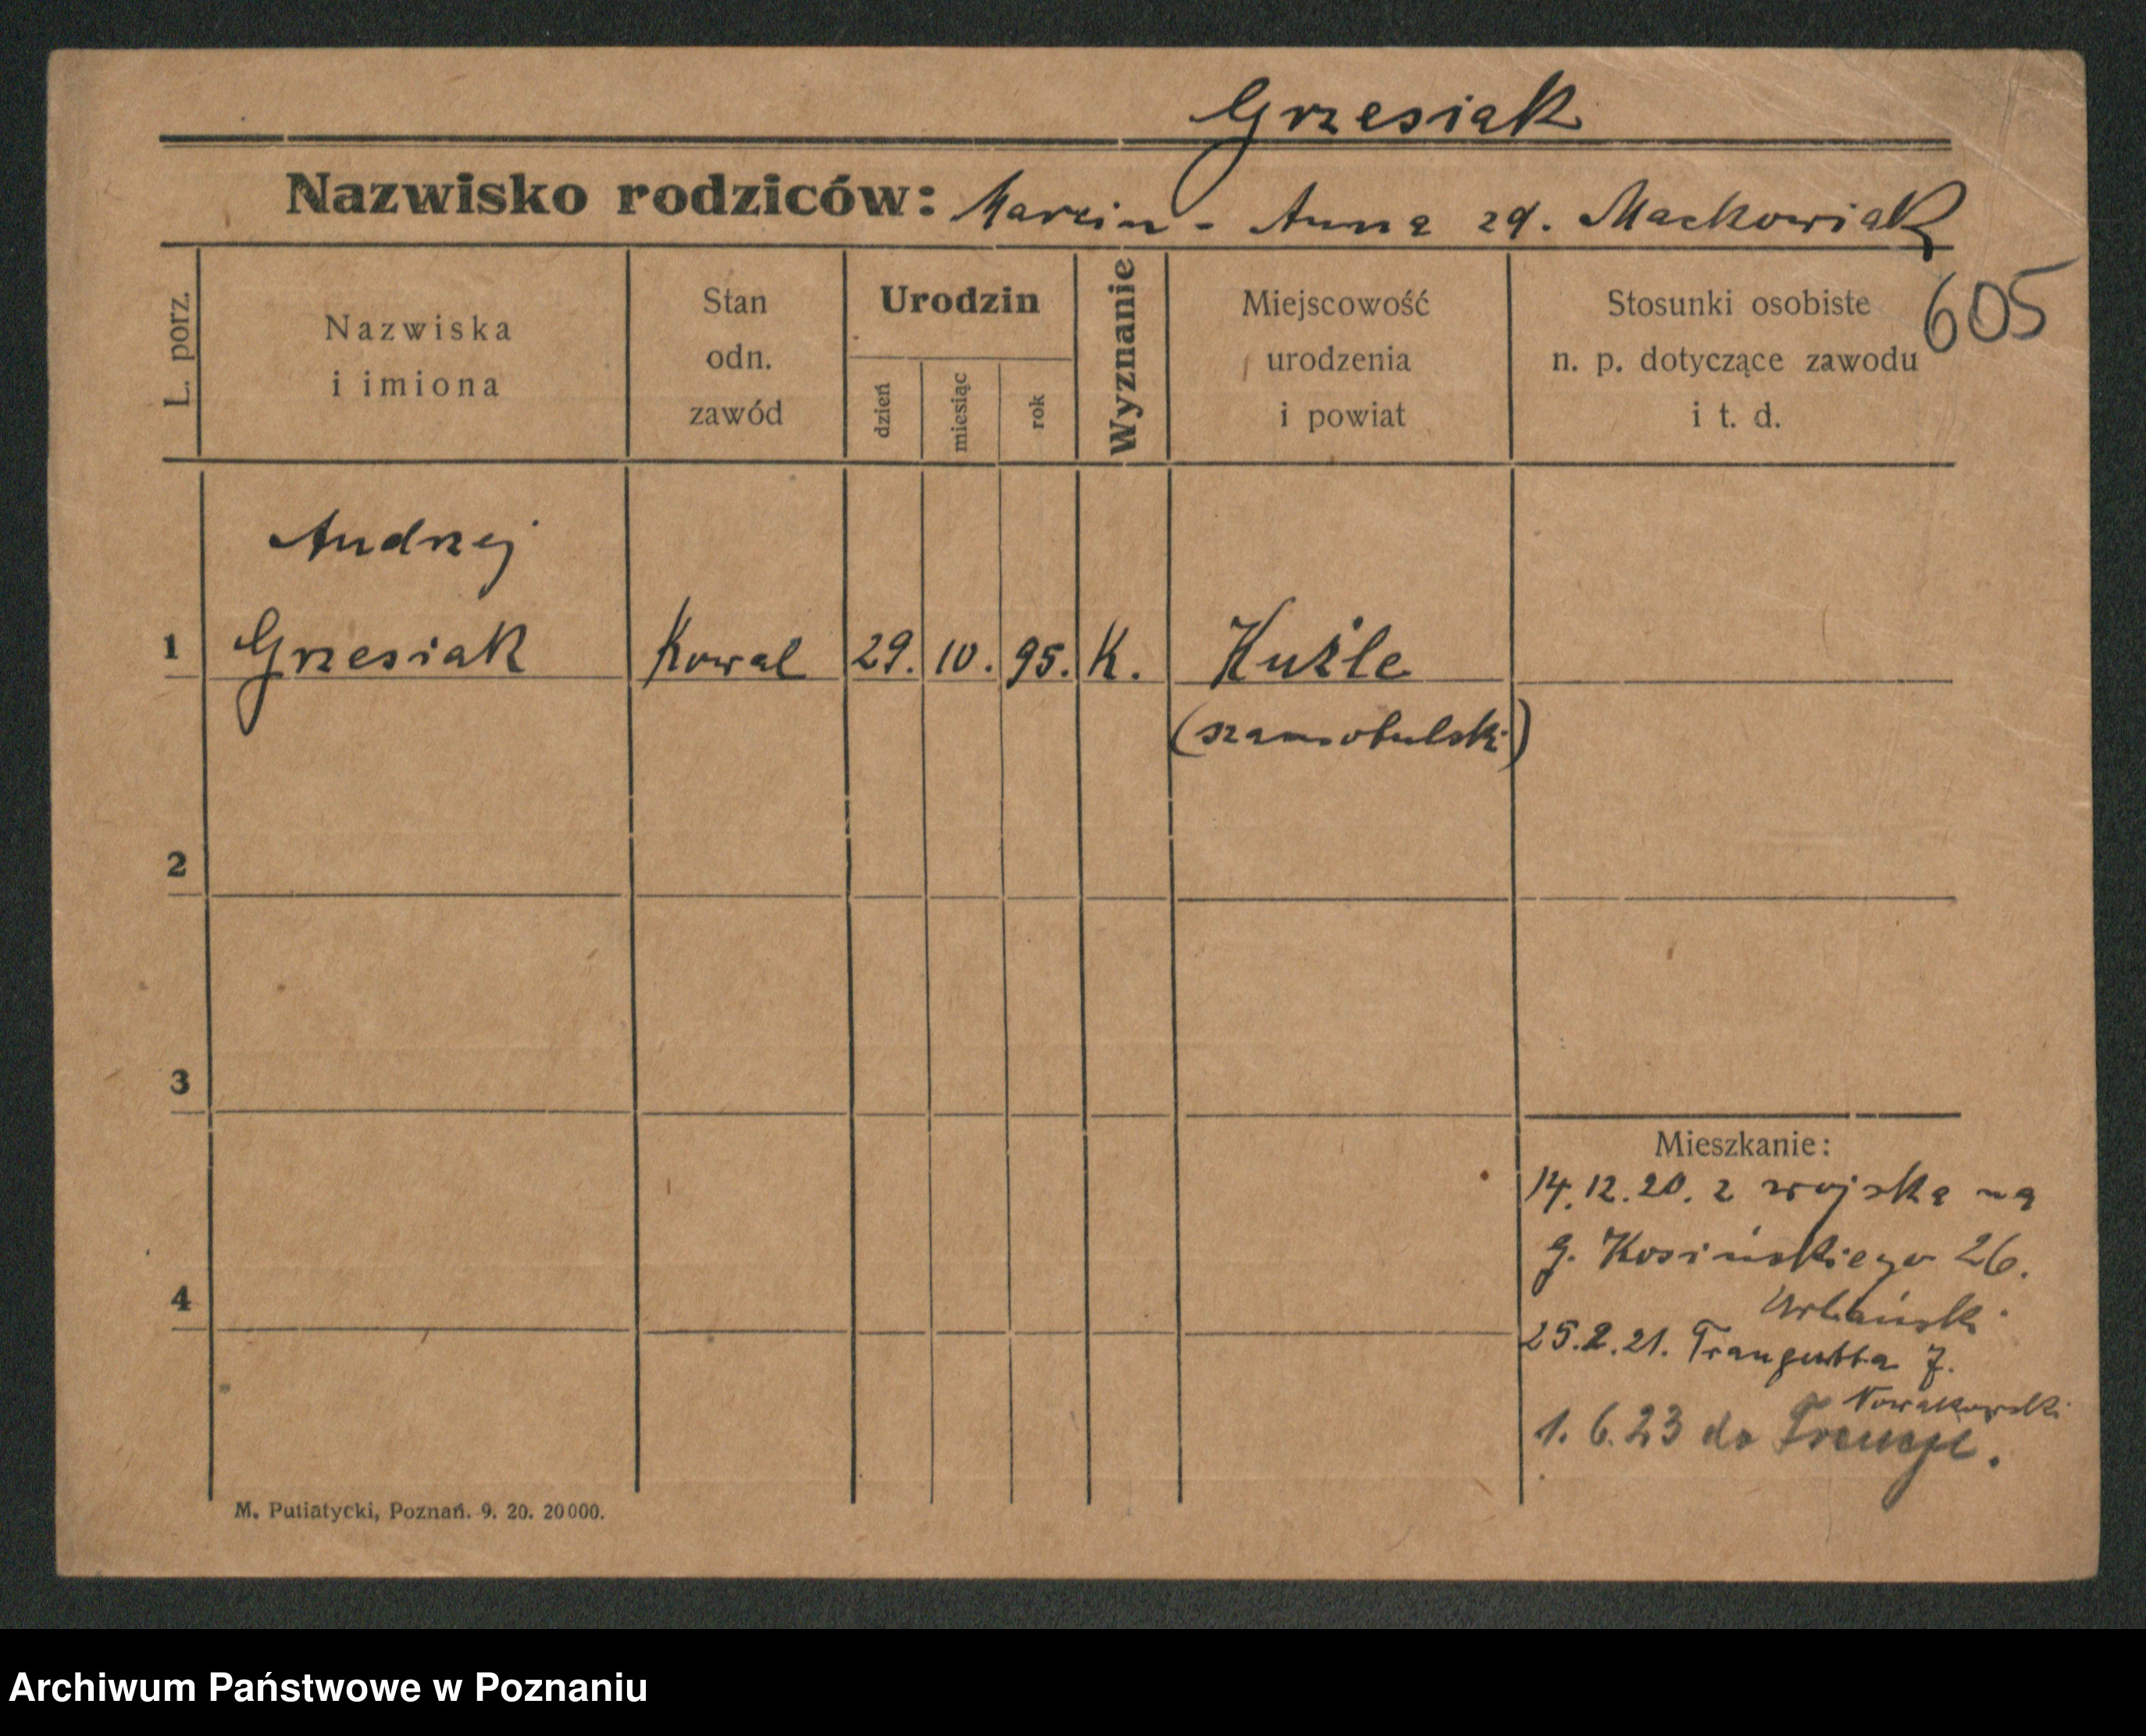 Grzesiak
Nazwisko rodziców: Marcin - Anna zd. Maćkowiak
605
L. porz.
Nazwiska
i imiona
Stan
odn.
zawód
Urodzin
dzień
miesiąc
rok
Wyznanie
Miejscowość
urodzenia
i powiat
Stosunki osobiste
n. p. dotyczące zawodu
i t. d.
Andrzej
1 Grzesiak Kowal 29. 10. 95. K. Kuźle
(szamotulski)
2
3
Mieszkanie:
14.12.20. z wojska na
g. Kosińskiego 26.
Urbański
4
25.2.21. Traugutta 7.
Nowakowski
1.6.23 do Francji.
M. Putiatycki, Poznań. 9. 20. 20000.
Archiwum Państwowe w Poznaniu